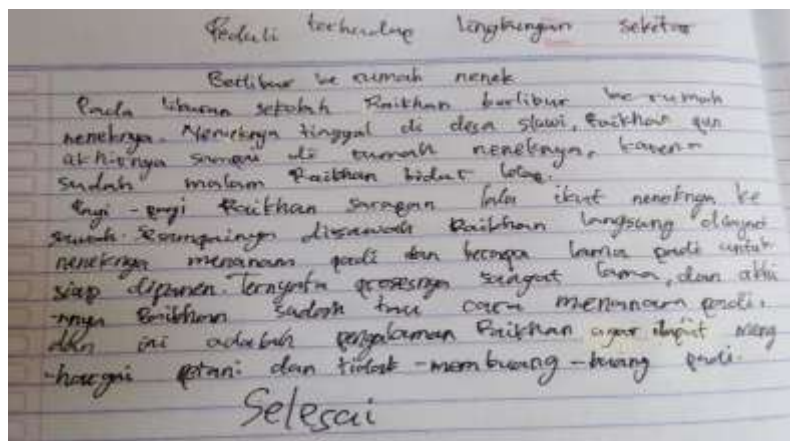 Peduli terhadap lingkungan sekitar
Berlibur ke rumah nenek
Pada liburan sekolah Raikhan berlibur ke rumah
neneknya. Neneknya tinggal di desa slawi, Raikhan pun
akhirnya sampai di rumah neneknya, karena
sudah malam Raikhan tidur
Pagi - pagi Raikhan sarapan lalu ikut neneknya ke
sawah. Sesampainya disawah Raikhan langsung
neneknya menanam padi dan berapa lama padi untuk
siap dipanen. Ternyata prosesnya sangat lama, dan akhi
-rnya Raikhan sudah tau cara menanam padi.
dan ini adalah pengalaman Raikhan agar dapat meng
-hargai petani dan tidak -membuang -buang padi.
Selesai